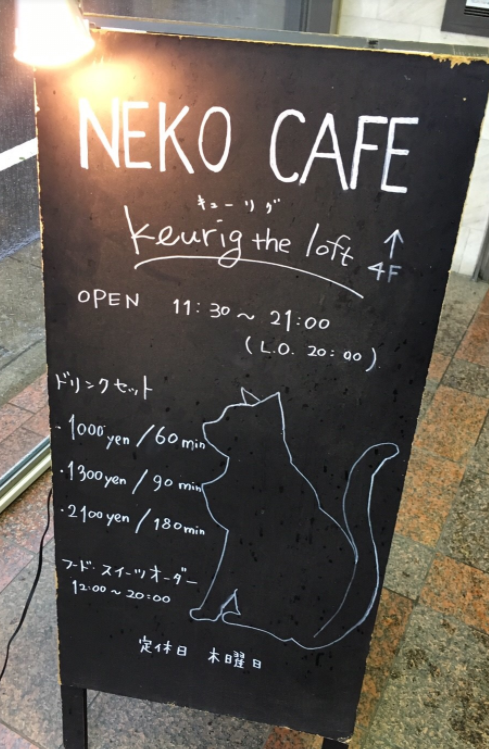 NEKO CAFE
キューリグ
keurig the loft ↑
4F
OPEN 11:30～21:00
(L.O. 20:00)
ドリンクセット
・1000yen/60min
・1300yen/90min
・2100yen/180min
フード・スイーツオーダー
12:00～20:00
定休日 木曜日